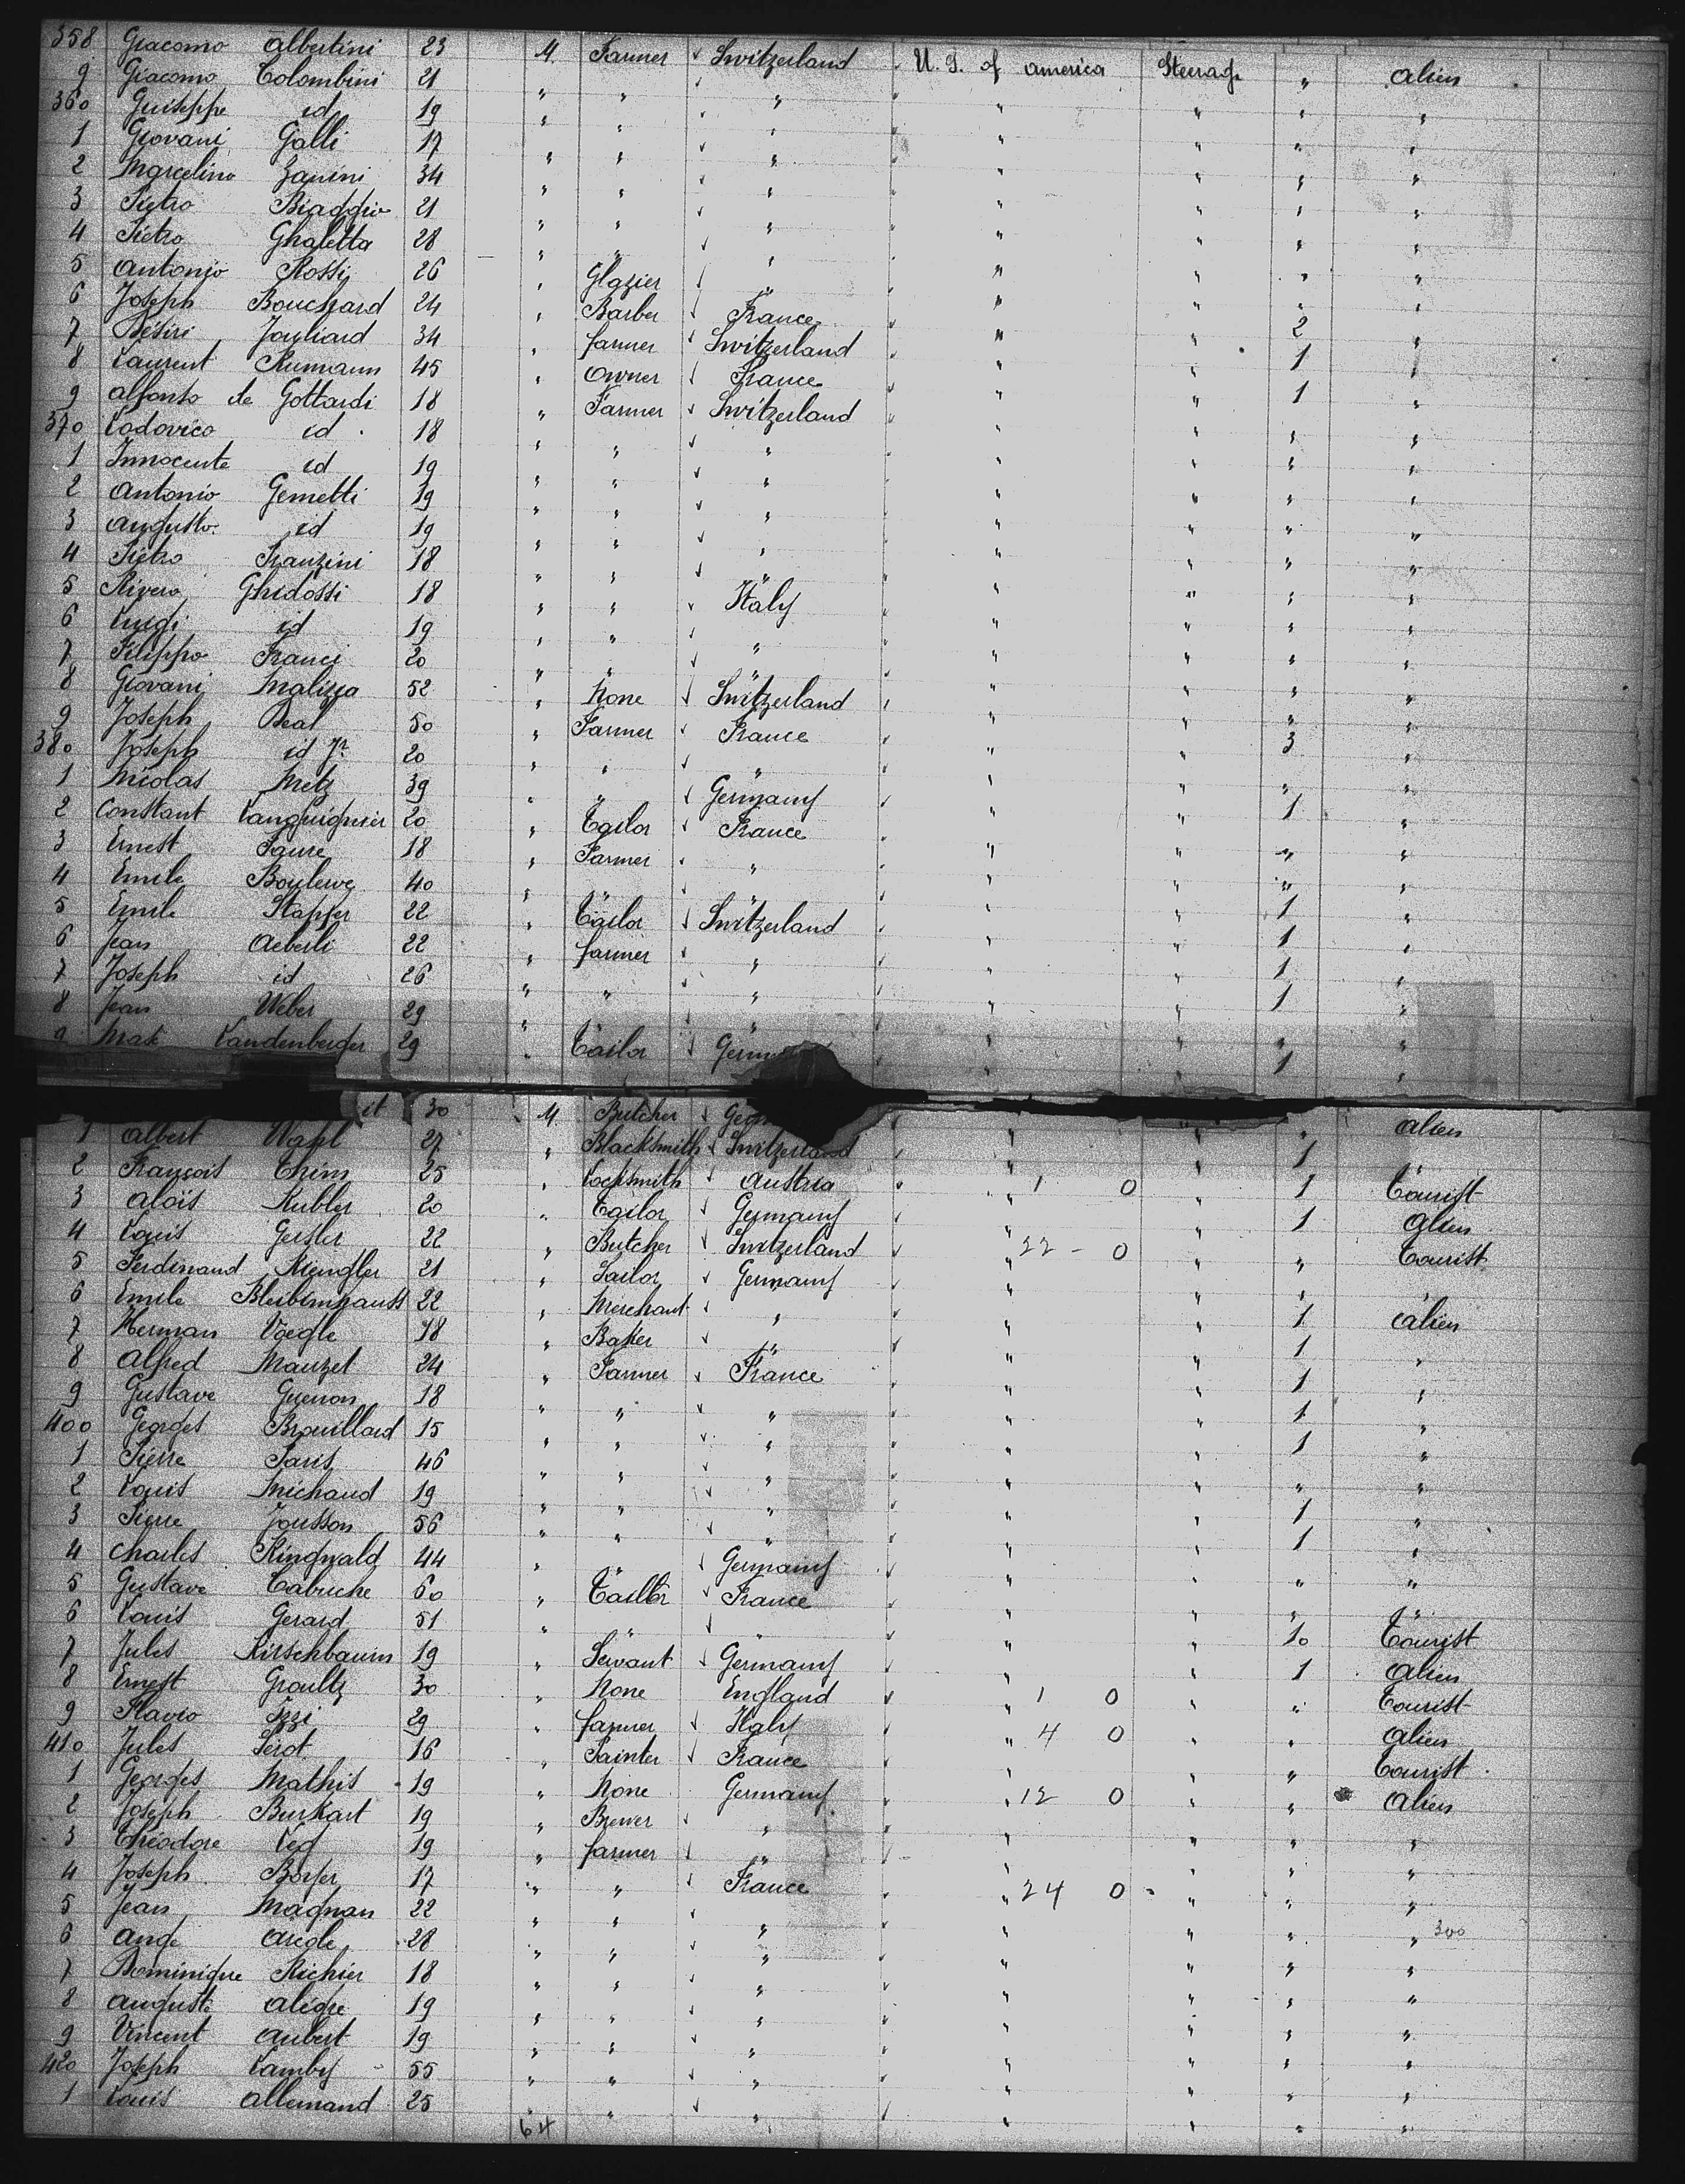 358 Giacomo Albertini 23 M. Farmer ✓ Switzerland U. S. of America Steerage " Alien
9 Giacomo Colombini 21 " " ✓ " " " " "
360 Guiseppe id 19 " " ✓ " " " " "
1 Giovani Galli 17 " " ✓ " " " " "
2 Marcelino Zanini 34 " " ✓ " " " " "
3 Pietro Biaggio 21 " " ✓ " " " " "
4 Pietro Ghaletta 28 " " ✓ " " " " "
5 Antonio Rossi 26 " Glazier ✓ " " " " "
6 Joseph Bouchard 24 " Barber ✓ France " " " "
7 Désiri Jouliard 34 " farmer ✓ Switzerland " " 2 "
8 Laurent Rumann 45 " Owner ✓ France " " 1 "
9 Alfonso de Gottardi 18 " Farmer ✓ Switzerland " " 1 "
370 Lodovico id 18 " " ✓ " " " " "
1 Innocente id 19 " " ✓ " " " " "
2 Antonio Gemetti 19 " " ✓ " " " " "
3 Augusto id 19 " " ✓ " " " " "
4 Pietro Franzini 18 " " ✓ " " " " "
5 Rivero Ghidossi 18 " " ✓ Italy " " " "
6 Luigi id 19 " " ✓ " " " " "
7 Filippo Franci 20 " " ✓ " " " " "
8 Giovani Malizia 52 " None ✓ Switzerland " " " "
9 Joseph Beal 50 " Farmer ✓ France " " " "
380 Joseph id Jr 20 " " ✓ " " " 3 "
1 Nicolas Metz 39 " " ✓ Germany " " " "
2 Constant Languignier 20 " Tailor ✓ France " " 1 "
3 Ernest Faure 18 " Farmer ✓ " " " " "
4 Emile 40 " " ✓ " " " " "
5 Emile Stapfer 22 " Tailor ✓ Switzerland " " 1 "
6 Jean Aeberli 22 " farmer ✓ " " " 1 "
7 Joseph id 26 " " ✓ " " " 1 "
8 Jean Weber 29 " " ✓ " " " 1 "
9 Max Landenberger 29 " Tailor ✓ " " " "
id 30 M Butcher ✓ " " " Alien
1 Albert Wahl 27 " Blacksmith ✓ Switzerland " " 1
2 François Thim 25 " Locksmith ✓ Austria " 1 0 " 1 Tourist
3 Aloïs Kubler 20 " Tailor ✓ Germany " " 1 Alien
4 Louis Geisler 22 " Butcher ✓ Switzerland " 22 - 0 " " Tourist
5 Ferdinand Riengler 21 " Tailor ✓ Germany " " " "
6 Emile Bleibimhauss 22 " Merchant ✓ " " " 1 Alien
7 Herman Voegle 18 " Baker ✓ " " " 1 "
8 Alfred Mauzet 24 " Farmer ✓ France " " 1 "
9 Gustave Guenon 18 " " ✓ " " " 1 "
400 Georges Brouillard 15 " " ✓ " " " 1 "
1 Pierre Paris 46 " " ✓ " " " " "
2 Louis Michaud 19 " " ✓ " " " 1 "
3 Pierre Jousson 56 " " ✓ " " " 1 "
4 Charles Ringwald 44 " " ✓ Germany " " " "
5 Gustave Cabuche 60 " Tailor ✓ France " " " "
6 Louis Gerard 51 " " ✓ " " " 10 Tourist
7 Jules Kirschbaum 19 " Servant ✓ Germany " " 1 Alien
8 Ernest Groultz 30 " None England " 1 0 " " Tourist
9 Flavio Izzi 29 " farmer ✓ Italy " 4 0 " " Alien
410 Jules Serot 16 " Painter ✓ France " " " Tourist
1 Georges Mathis 19 " None Germany " 12 0 " " Alien
2 Joseph Burkart 19 " Brewer ✓ " " " " "
3 Théodore Veg 19 " farmer ✓ " " " " "
4 Joseph Borfer 17 " " ✓ France " 24 0 " " "
5 Jean Magnan 22 " " ✓ " " " " " 300
6 Ange Areole 28 " " ✓ " " " " "
7 Dominique Richier 18 " " ✓ " " " " "
8 Auguste Aligre 19 " " ✓ " " " " "
9 Vincent Aubert 19 " " ✓ " " " " "
420 Joseph Lamby 55 " " ✓ " " " " "
1 Louis Allemand 25 " " " " " " "
64